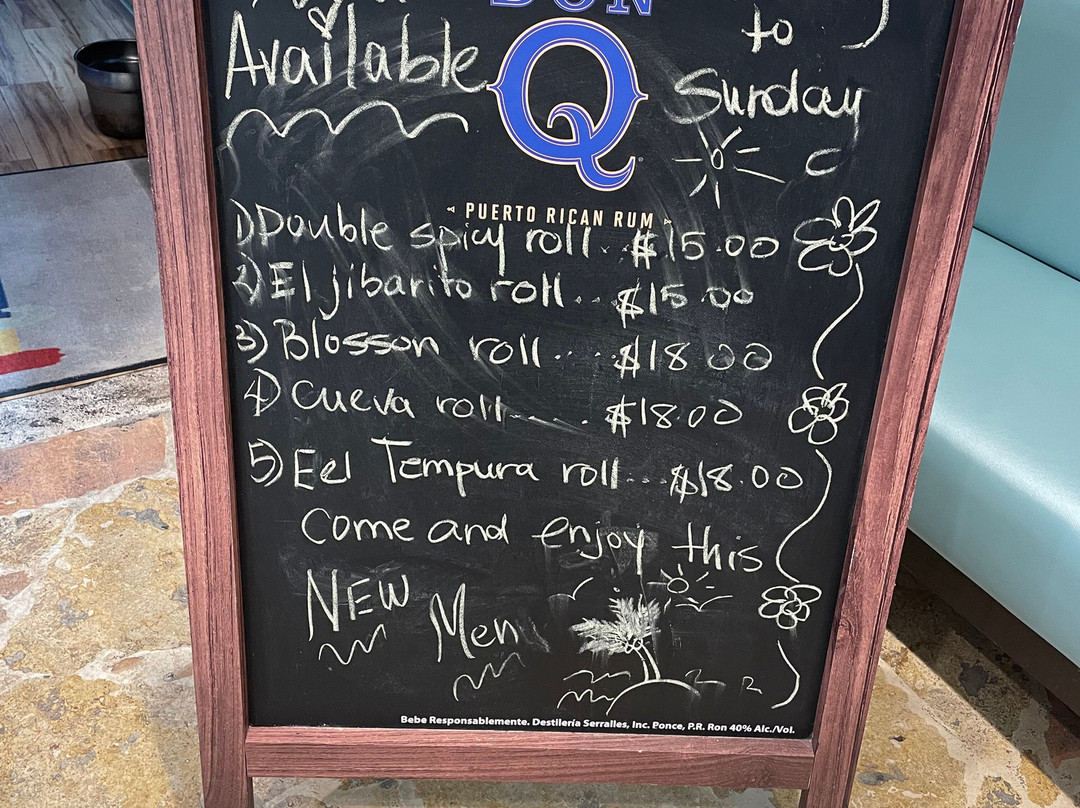 DON
to
Available
Q
Sunday
PUERTO RICAN RUM
1) Double spicy roll.. $15.00
2) El jibarito roll... $15.00
3) Blosson roll..... $18.00
4) Cueva roll..... $18.00
5) Eel Tempura roll.... $18.00
Come and enjoy this
NEW Men
Bebe Responsablemente. Destilería Serralles, Inc. Ponce, P.R. Ron 40% Alc./Vol.